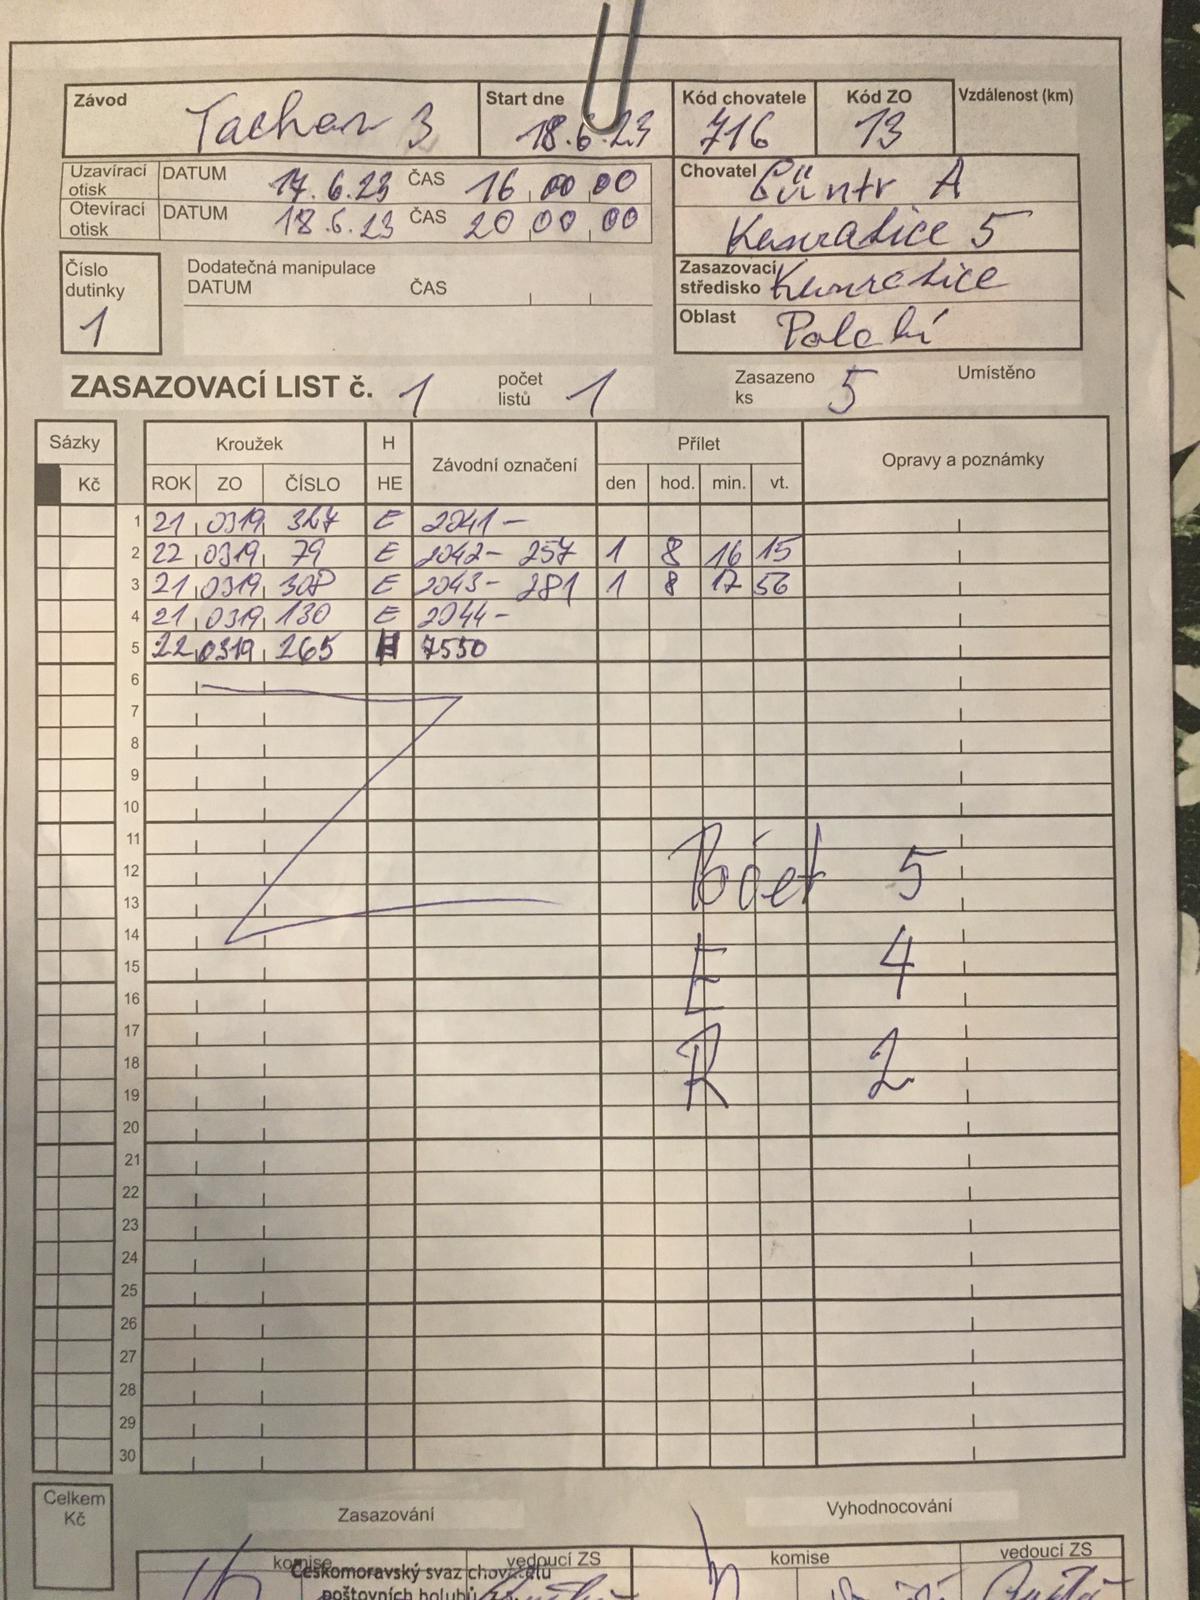 Závod Tachov 3 Start dne 18.6.23 Kód chovatele 716 Kód ZO 13 Vzdálenost (km)
Uzavírací otisk DATUM 17.6.23 ČAS 16 00 00
Otevírací otisk DATUM 18.6.23 ČAS 20 00 00
Chovatel Güntr A
Kunratice 5
Zasazovací středisko Kunratice
Oblast Polabí
Číslo dutinky 1
Dodatečná manipulace
DATUM ČAS
ZASAZOVACÍ LIST č. 1 počet listů 1 Zasazeno ks 5 Umístěno
Sázky Kroužek H Závodní označení Přílet Opravy a poznámky
Kč ROK ZO ČÍSLO HE den hod. min. vt.
1 21 0319 327 E 2041 -
2 22 0319 79 E 2042 - 257 1 8 16 15
3 21 0319 308 E 2043 - 281 1 8 17 56
4 21 0319 130 E 2044 -
5 22 0319 265 H 7550
6
7
8
9
10
11
12 Počet 5
13
14
15 E 4
16
17
18 R 2
19
20
21
22
23
24
25
26
27
28
29
30
Celkem Kč
Zasazování Vyhodnocování
komise vedoucí ZS komise vedoucí ZS
Českomoravský svaz chovatelů
poštovních holubů